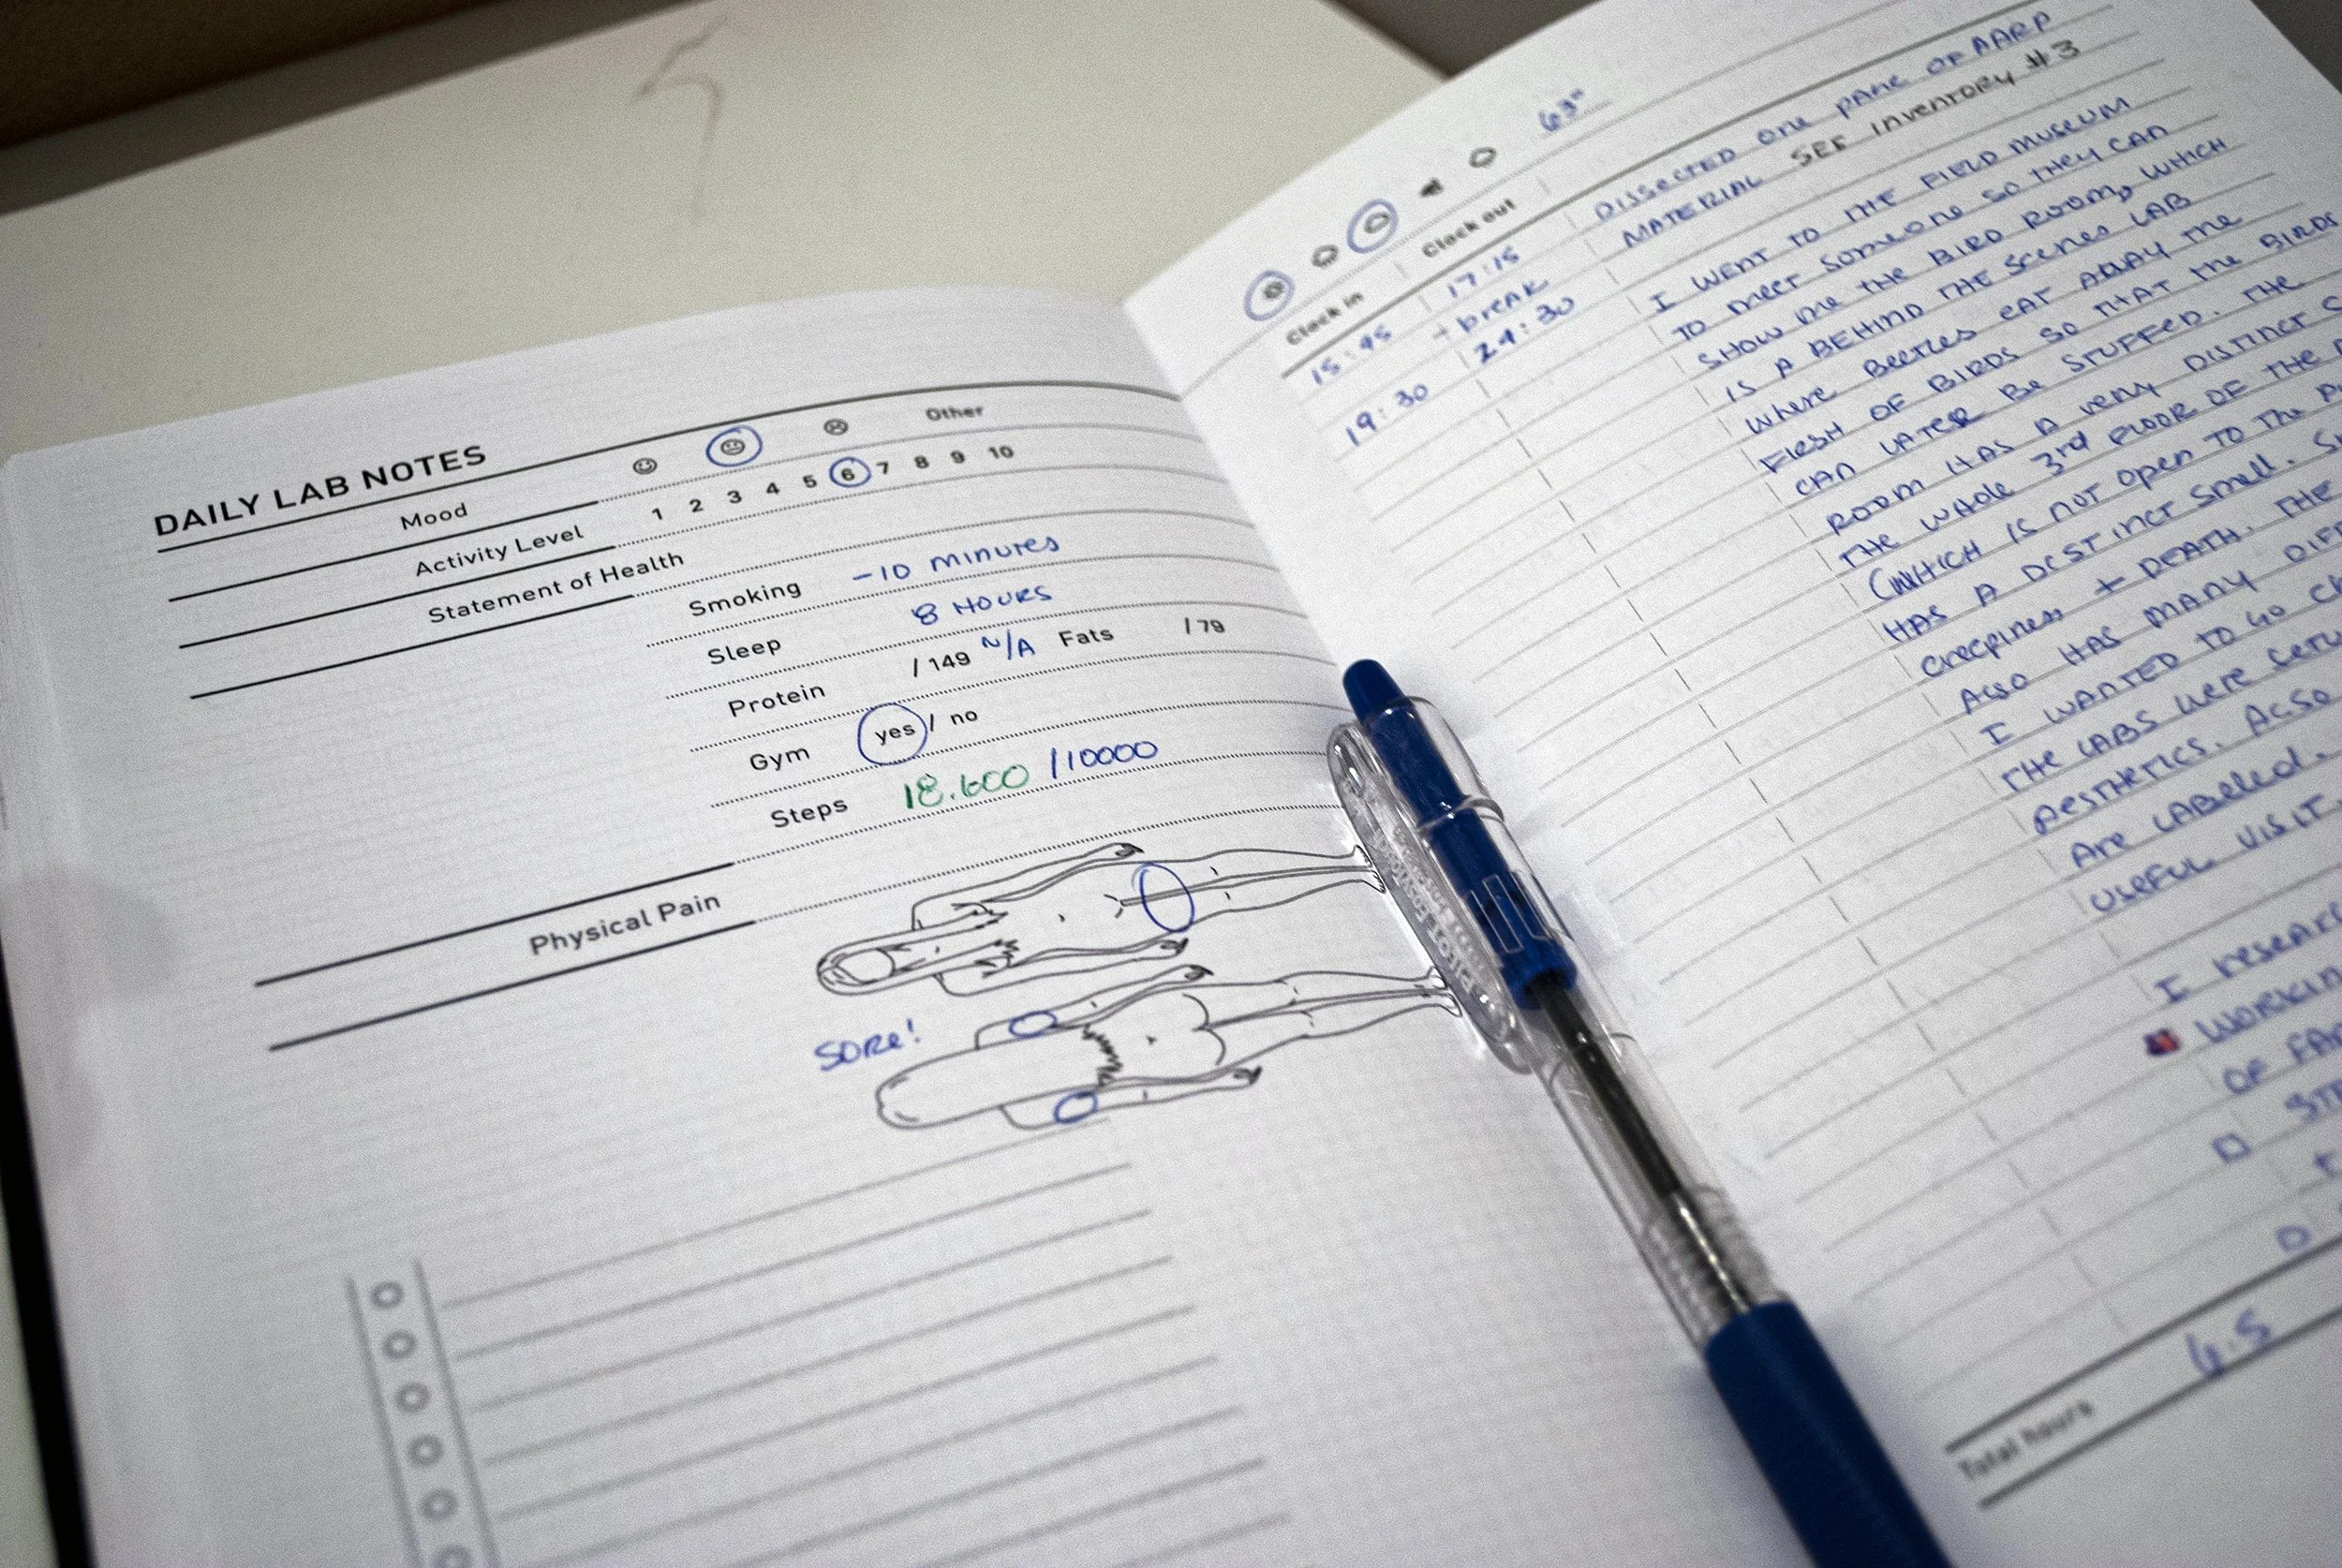 DAILY LAB NOTES
Mood
Other
Activity Level 1 2 3 4 5 6 7 8 9 10
Statement of Health
Smoking -10 MINUTES
Sleep 8 HOURS
Protein / 149 N/A Fats / 79
Gym yes / no
Steps 18.600 /10000
Physical Pain
SORE!
63°
Clock in Clock out
15:45 17:15 DISSECTED ONE PAGE OF AARP
+ BREAK MATERIAL SEE INVENTORY #3
19:30 24:30
I WENT TO THE FIELD MUSEUM
TO MEET SOMEONE SO THEY CAN
SHOW ME THE BIRD ROOM, WHICH
IS A BEHIND THE SCENES LAB
WHERE BEETLES EAT AWAY THE
FLESH OF BIRDS SO THAT THE BIRDS
CAN LATER BE STUFFED. THE
ROOM HAS A VERY DISTINCT
THE WHOLE 3rd FLOOR OF THE
(WHICH IS NOT OPEN TO THE
HAS A DISTINCT SMELL.
CREEPINESS + DEATH. THE
ALSO HAS MANY
I WANTED TO GO
THE LABS WERE
AESTHETICS. ALSO
ARE LABELED.
USEFUL VISIT.
I
OF
Total hours 6.5
PILOT